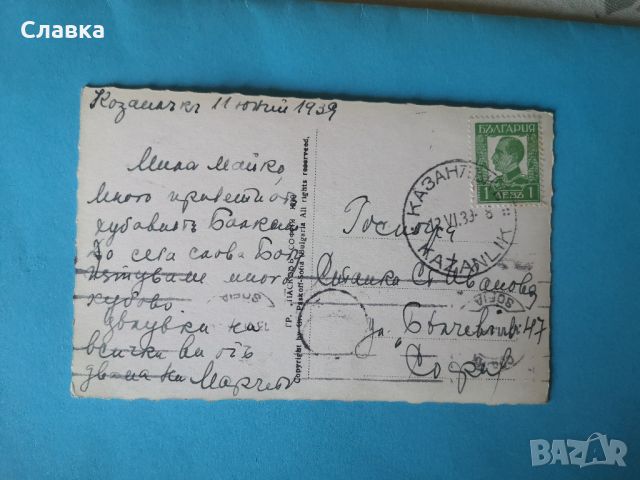 Славка
Казанлъкъ 11 юний 1939
Мила майко,
много приветi отъ
хубавиятъ Балкан
До сега слава Богу
пътуваме много
хубаво
Целувки на
всички ви отъ
двама ни Марче
ГР. ПАСКОВЪ - СОФИЯ
Copyright by Gr. Paskoff-Sofia Bulgaria All rights reserved,
БЪЛГАРИЯ
1 ЛЕВЪ 1
КАЗАНЛЪКЪ
12.VI.39- 8
KAZANLIK
Госпожа
Ст. Иванова
ул. 47
София
SOFIA
SOFIA
BAZAR